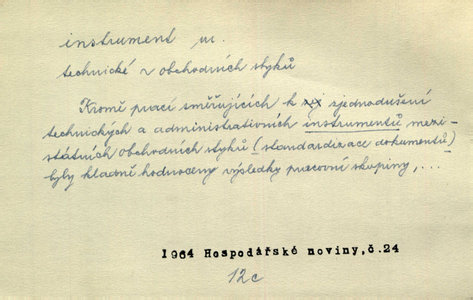 instrument m.
technické v obchodních styků
Kromě prací směřujících k zjednodušení
technických a administrativních instrumentů mezi-
státních obchodních styků (standardizace dokumentů)
byly kladně hodnoceny výsledky pracovní skupiny, ...
1964 Hospodářské noviny,č.24
12c